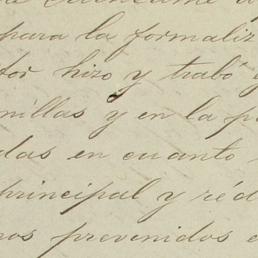 para la formaliz
tor hizo y trabó
nillas y en la p
das en cuanto
principal y réd
nos prevenidos e